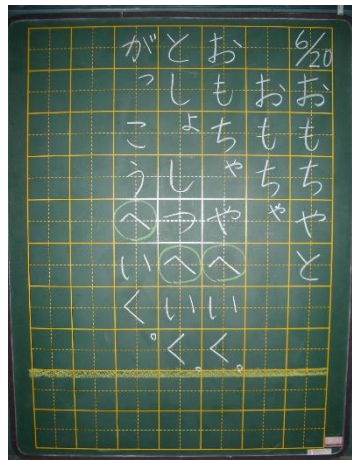 6/20
おもちやと
おもちゃ
おもちゃやへいく。
としょしつへいく。
がっこうへいく。